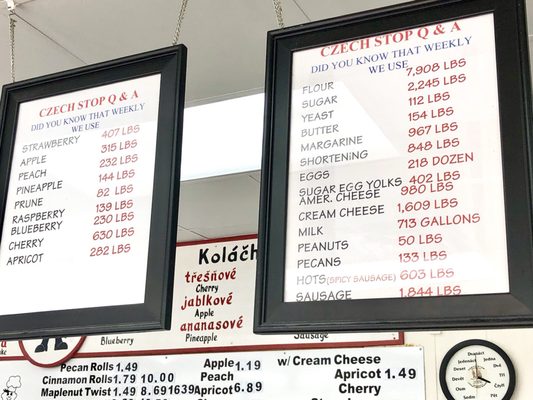 CZECH STOP Q & A
DID YOU KNOW THAT WEEKLY
WE USE
STRAWBERRY 407 LBS
APPLE 315 LBS
PEACH 232 LBS
PINEAPPLE 144 LBS
PRUNE 82 LBS
RASPBERRY 139 LBS
BLUEBERRY 230 LBS
CHERRY 630 LBS
APRICOT 282 LBS
CZECH STOP Q & A
DID YOU KNOW THAT WEEKLY
WE USE
FLOUR 7,908 LBS
SUGAR 2,245 LBS
YEAST 112 LBS
BUTTER 154 LBS
MARGARINE 967 LBS
SHORTENING 848 LBS
EGGS 218 DOZEN
SUGAR EGG YOLKS 402 LBS
AMER. CHEESE 980 LBS
CREAM CHEESE 1,609 LBS
MILK 713 GALLONS
PEANUTS 50 LBS
PECANS 133 LBS
HOTS (SPICY SAUSAGE) 603 LBS
SAUSAGE 1,844 LBS
Koláč
třešňové
Cherry
jablkové
Apple
ananasové
Pineapple
Blueberry
Sausage
Pecan Rolls 1.49
Cinnamon Rolls 1.79 10.00
Maplenut Twist 1.49 8.69 16 39
Apple 1.19
Peach
Apricot 6.89
w/ Cream Cheese
Apricot 1.49
Cherry
Dvanáct
Jedna
Dvě
Tři
Čtyři
Deset
Jedenáct